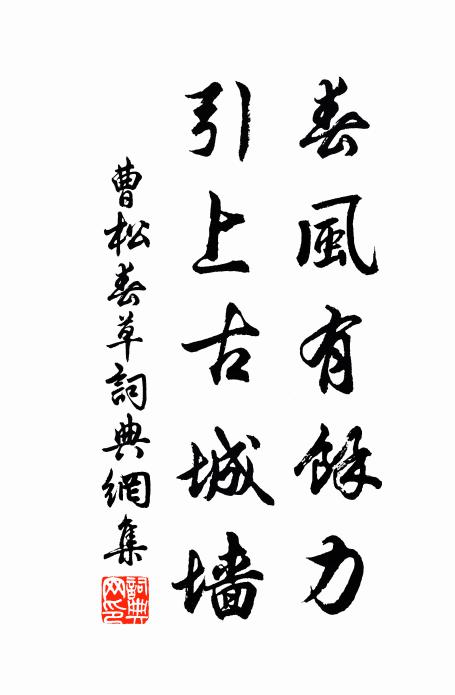 春風有餘力
引上古城墙
曹松春草詞典網集
詞典網印